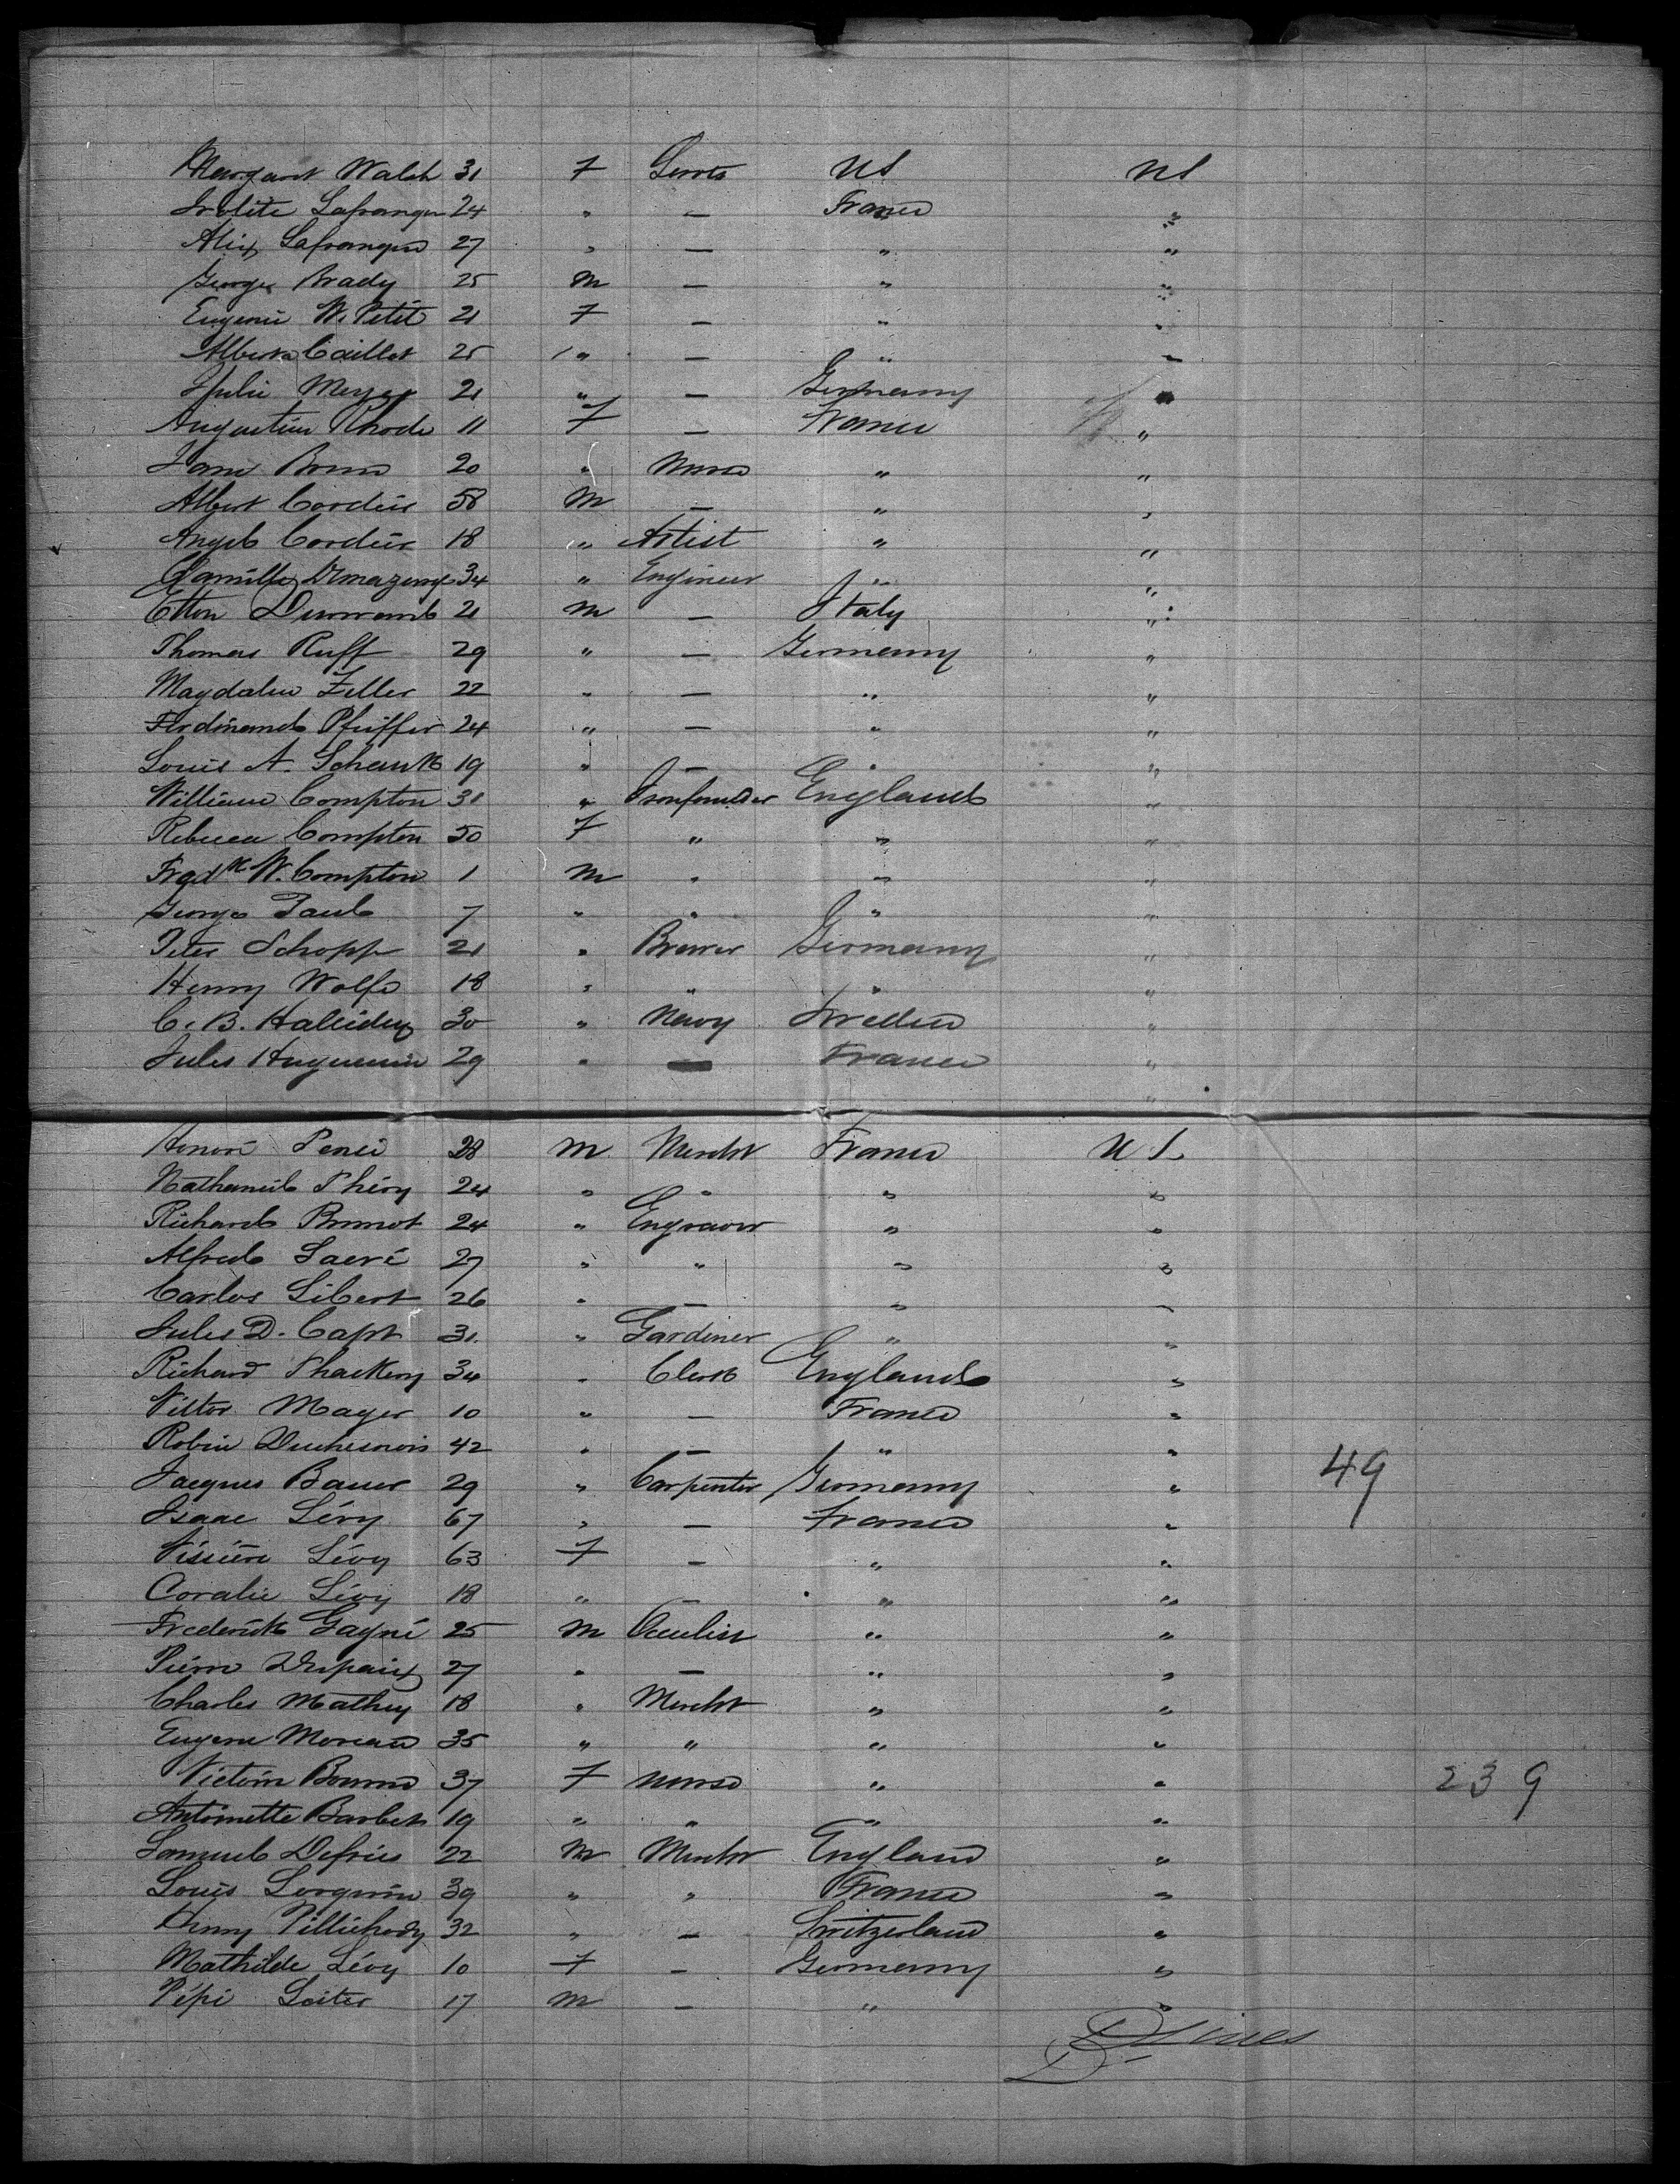 Margaret Walsh 31 F Servts US US
Lafrangue 24 " — France "
Alix Lafrangue 27 " — " "
George Brady 25 M — " "
Eugenie W. Petit 21 F — " "
Caillet 25 " — " "
Julie Meyer 21 " — Germany "
Augustine Rhode 11 F — France "
Jane 20 " Nurse " "
Albert Cordier 58 M — " "
Cordier 18 " Artist " "
Camille 34 " Engineer " "
21 M — Italy "
Thomas Ruff 29 " — Germany "
Magdalen Zeller 22 " — " "
Ferdinand Pfeiffer 24 " — " "
Louis A. Schenk 19 " — " "
William Compton 31 " Ironfounder England "
Rebecca Compton 50 F " " "
Fredk W. Compton 1 M " " "
George Paul 7 " " " "
Peter Schopp 21 " Brewer Germany "
Henry Wolfe 18 " " " "
C. B. Halliday 30 " Navy "
Jules Huguenin 29 " — France "
Honoré 28 M Mercht France US
Nathaniel Théry 24 " " " "
Richard Brunot 24 " Engraver " "
Alfred Sacré 27 " " " "
Carlos Libert 26 " — " "
Jules D. Capt 31 " Gardener " "
Richard Thackery 34 " Clerk England "
Victor Mayer 10 " — France "
Robin Duchesnois 42 " — " "
Jacques Bauer 29 " Carpenter Germany " 49
Isaac Lévy 67 " — France "
Lévy 63 F — " "
Coralie Lévy 18 " — " "
Frederick Gagné 25 M Oculist " "
Pierre Dupaix 27 " — " "
Charles Mathey 18 " Mercht " "
Eugene Moreau 35 " " " "
Victorin 37 F Nurse " " 239
Antoinette Barbet 19 " " " "
Samuel Defries 22 M Mercht England "
Louis Lorquin 39 " " France "
Henry Pillichody 32 " — Switzerland "
Mathilde Lévy 10 F — Germany "
Pépi Leiter 17 M — " "